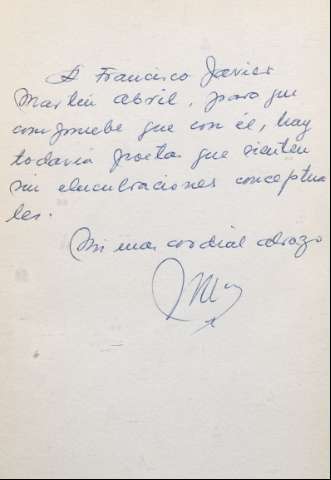 A Francisco Javier
Martín Abril, para que
compruebe que con él, hay
todavía poetas que sienten
sin elucubraciones conceptua
les.
Mi mas cordial abrazo